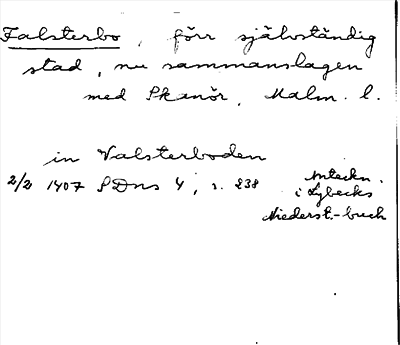 Falsterbo, förr självständig
stad, nu sammanslagen
med Skanör, Malm. l.
in Valsterboden
2/2 1407 SDns 4, s. 238 Anteckn.
i Lybecks
Niederst.-buch